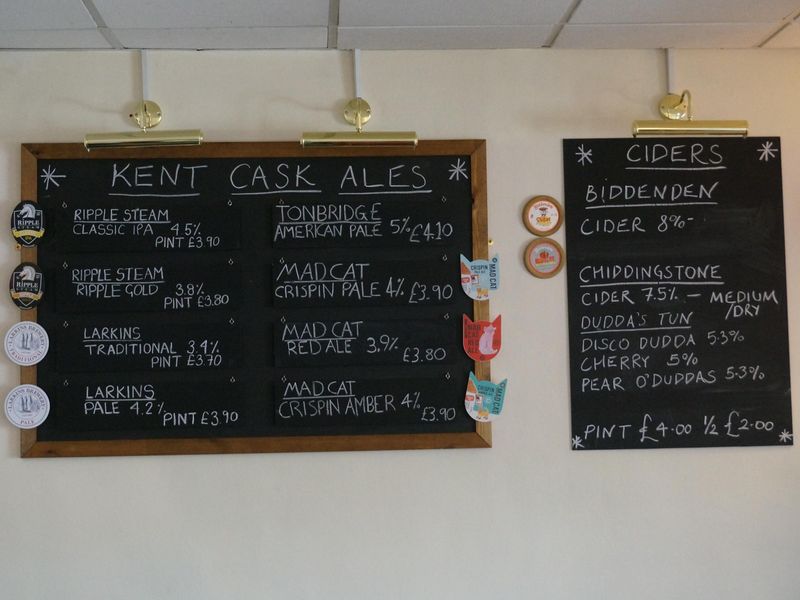 KENT CASK ALES
RIPPLE STEAM
CLASSIC IPA 4.5%
PINT £3.90
RIPPLE STEAM
RIPPLE GOLD 3.8%
PINT £3.80
LARKINS
TRADITIONAL 3.4%
PINT £3.70
LARKINS
PALE 4.2%
PINT £3.90
TONBRIDGE
AMERICAN PALE 5% £4.10
MADCAT
CRISPIN PALE 4% £3.90
MADCAT
RED ALE 3.9% £3.80
MADCAT
CRISPIN AMBER 4% £3.90
RIPPLE
RIPPLE
LARKINS BREWERY
TRADITIONAL
LARKINS BREWERY
PALE
CRISPIN
MAD CAT
MAD CAT
RED ALE
CRISPIN
MAD CAT
CIDERS
BIDDENDEN
CIDER 8%-
CHIDDINGSTONE
CIDER 7.5% - MEDIUM
/DRY
DUDDA'S TUN
DISCO DUDDA 5.3%
CHERRY 5%
PEAR O'DUDDAS 5.3%
PINT £4.00 ½ £2.00